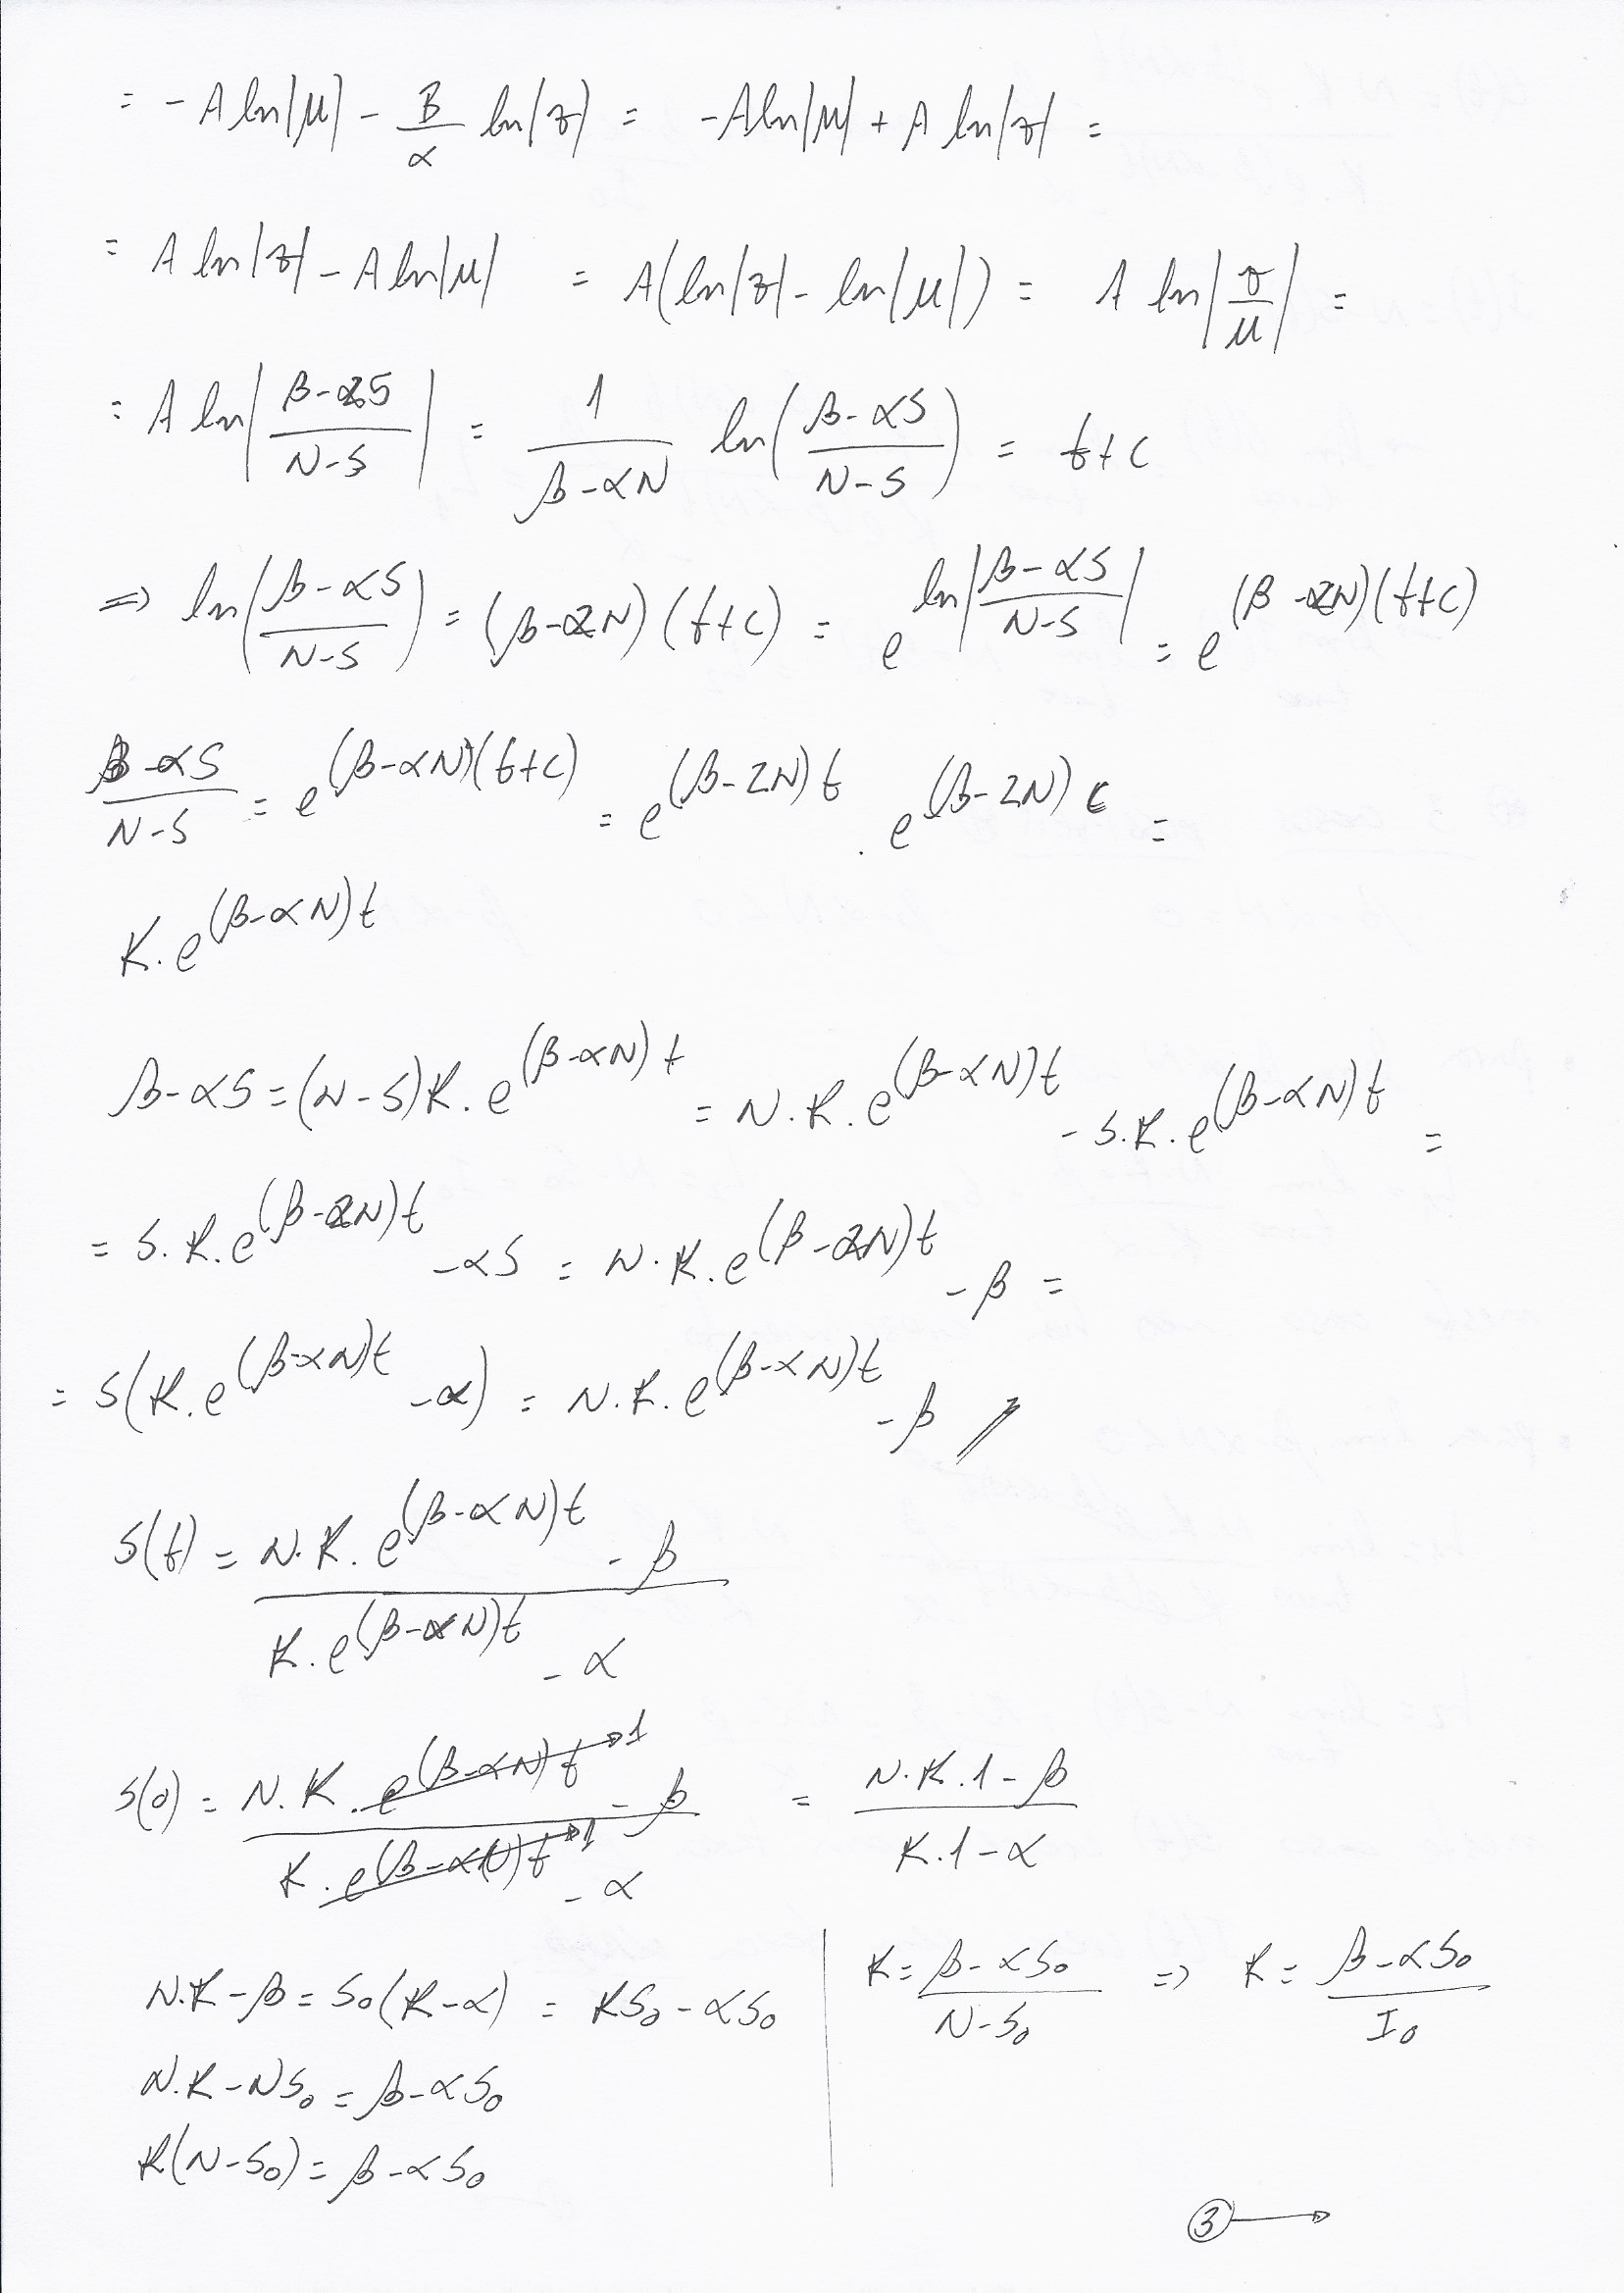 = -A ln|μ| - B/α ln|z| = -A ln|μ| + A ln|z| =
= A ln|z| - A ln|μ| = A(ln|z| - ln|μ|) = A ln|z/μ| =
= A ln|(β-αS)/(N-S)| = 1/(β-αN) ln((β-αS)/(N-S)) = t+c
=> ln((β-αS)/(N-S)) = (β-αN)(t+c) = e^{ln|(β-αS)/(N-S)|} = e^{(β-αN)(t+c)}
(β-αS)/(N-S) = e^{(β-αN)(t+c)} = e^{(β-2N)t} . e^{(β-2N)c} =
K.e^{(β-αN)t}
β-αS = (N-S)K.e^{(β-αN)t} = N.K.e^{(β-αN)t} - S.K.e^{(β-αN)t} =
= S.K.e^{(β-αN)t} - αS = N.K.e^{(β-αN)t} - β =
= S(K.e^{(β-αN)t} - α) = N.K.e^{(β-αN)t} - β //
S(t) = (N.K.e^{(β-αN)t} - β)/(K.e^{(β-αN)t} - α)
S(0) = (N.K.e^{(β-αN)t}→1 - β)/(K.e^{(β-αN)t}→1 - α) = (N.K.1-β)/(K.1-α)
N.K-β = S₀(K-α) = KS₀-αS₀
N.K-NS₀ = β-αS₀
K(N-S₀) = β-αS₀
K = (β-αS₀)/(N-S₀) => K = (β-αS₀)/I₀
③→